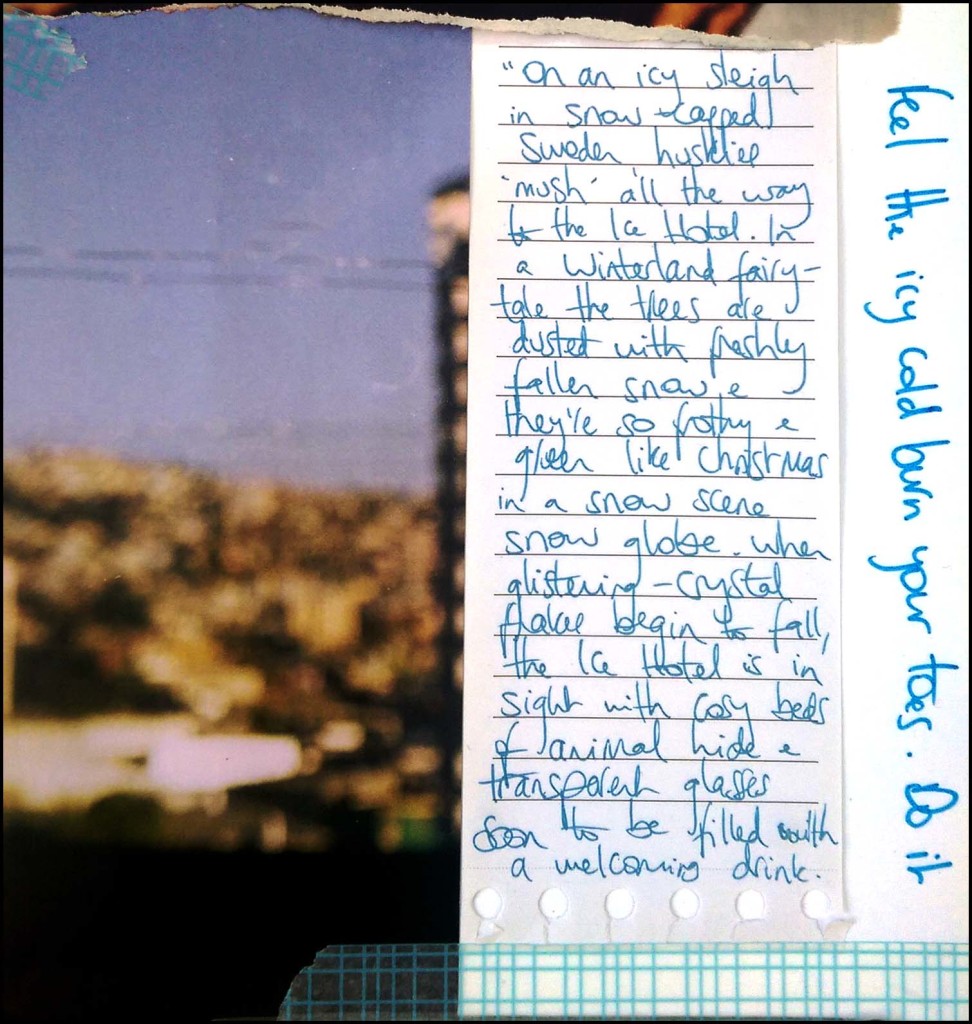 "On an icy sleigh
in snow-capped
Sweden huskies
'mush' all the way
to the Ice Hotel. In
a winterland fairy-
tale the trees are
dusted with freshly
fallen snow &
they're so frothy &
gleen like Christmas
in a snow scene
snow globe. When
glistening-crystal
flakes begin to fall,
the Ice Hotel is in
sight with cosy beds
of animal hide &
transparent glasses
soon to be filled with
a welcoming drink.
Feel the icy cold burn your toes. Do it